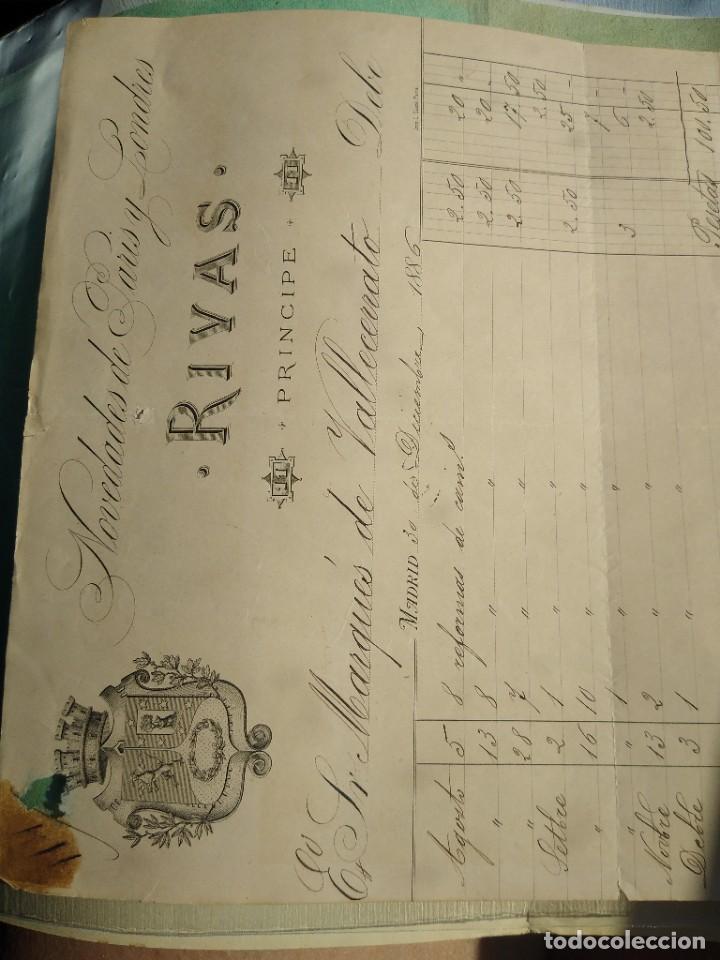 Novedades de Paris y Londres
· RIVAS ·
11 PRINCIPE 11
Sr Marqués de Vallecerrato Debe
MADRID 30 de Diciembre 1886
Agosto 5 8 reformas de cam.s 2.50 20 -
" 13 8 " " 2.50 20 -
" 28 7 " " 2.50 17.50
Setbre 2 1 " " 2.50
" 16 10 " " 2.50 25 -
" " 1 " " 7 -
Novbre 13 2 " " 3 6 -
Debre 3 1 " " 2.50
Pesetas
todocoleccion